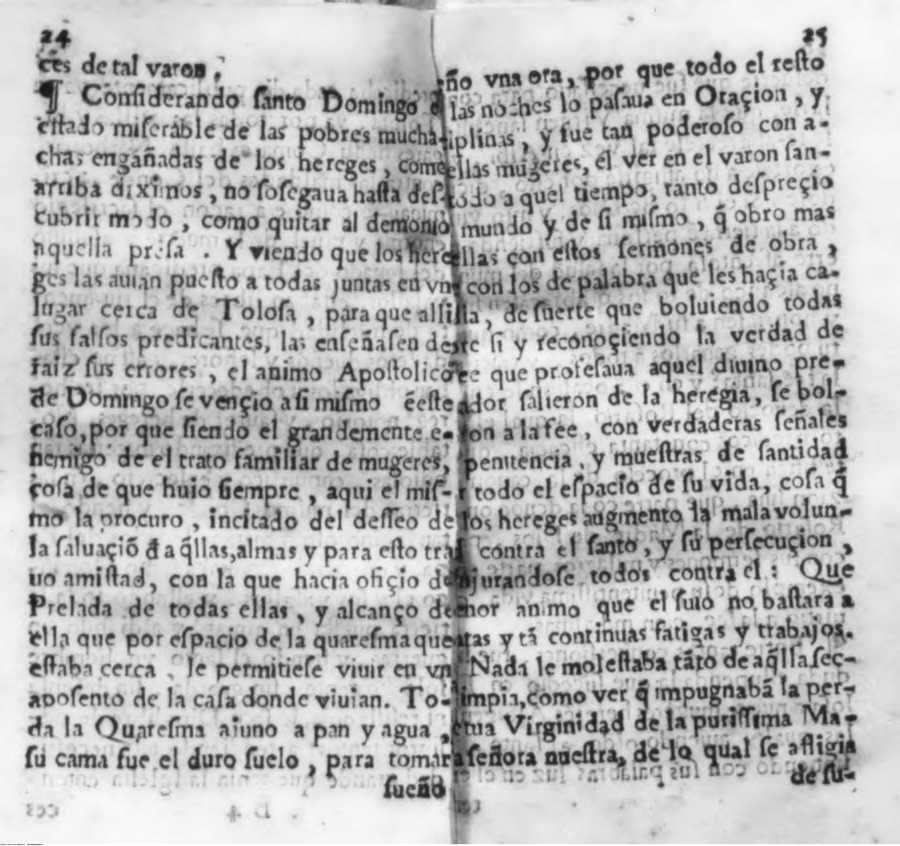 24
cẽs de tal varon.
¶ Considerando santo Domingo
estado miserable de las pobres mucha-
chas engañadas de los hereges, como
arriba diximos, no sosegaua hasta des-
cubrir modo, como quitar al demonio
aquella presa. Y viendo que los here
ges las auian puesto a todas juntas en vn
lugar cerca de Tolosa, para que alsi
sus falsos predicantes, las enseñasen de
raiz sus errores, el animo Apostolico
de Domingo se vençio asi mismo ẽeste
caso, por que siendo el grandemente e-
nemigo de el trato familiar de mugeres,
cosa de que huio siempre, aqui el mis-
mo la procuro, incitado del desseo de
la saluaçiõ đ a q̃llas, almas y para esto tra
uo amistad, con la que hacia ofiçio de
Prelada de todas ellas, y alcanço de
ella que por espacio de la quaresma que
estaba cerca, le permitiese viuir en vn
aposento de la casa donde viuian. To-
da la Quaresma aiuno a pan y agua,
su cama fue el duro suelo, para tomar
sueño
25
ño vna ora, por que todo el resto
las noches lo pasaua en Oraçion, y
iplinas, y fue tan poderoso con a-
ellas mugeres, el ver en el varon san-
todo a quel tiempo, tanto despreçio
mundo y de si mismo, q̃ obro mas
ellas con estos sermones de obra,
con los de palabra que les haçia ca-
sta, de suerte que boluiendo todas
re si y reconoçiendo la verdad de
ee que profesaua aquel diuino pre-
ador salieron de la heregia, se bol-
on a la fee, con verdaderas señales
penitencia, y muestras de santidad
r todo el espacio de su vida, cosa q̃
los hereges augmento la mala volun-
contra el santo, y su persecuçion,
njurandose todos contra el: Que
enor animo que el suio no bastara a
tas y tã continuas fatigas y trabajos.
Nada le molestaba tãto de aq̃lla sec-
impia, como ver q̃ impugnabã la per-
etua Virginidad de la purissima Ma-
señora nuestra, de lo qual se afligia
de su-